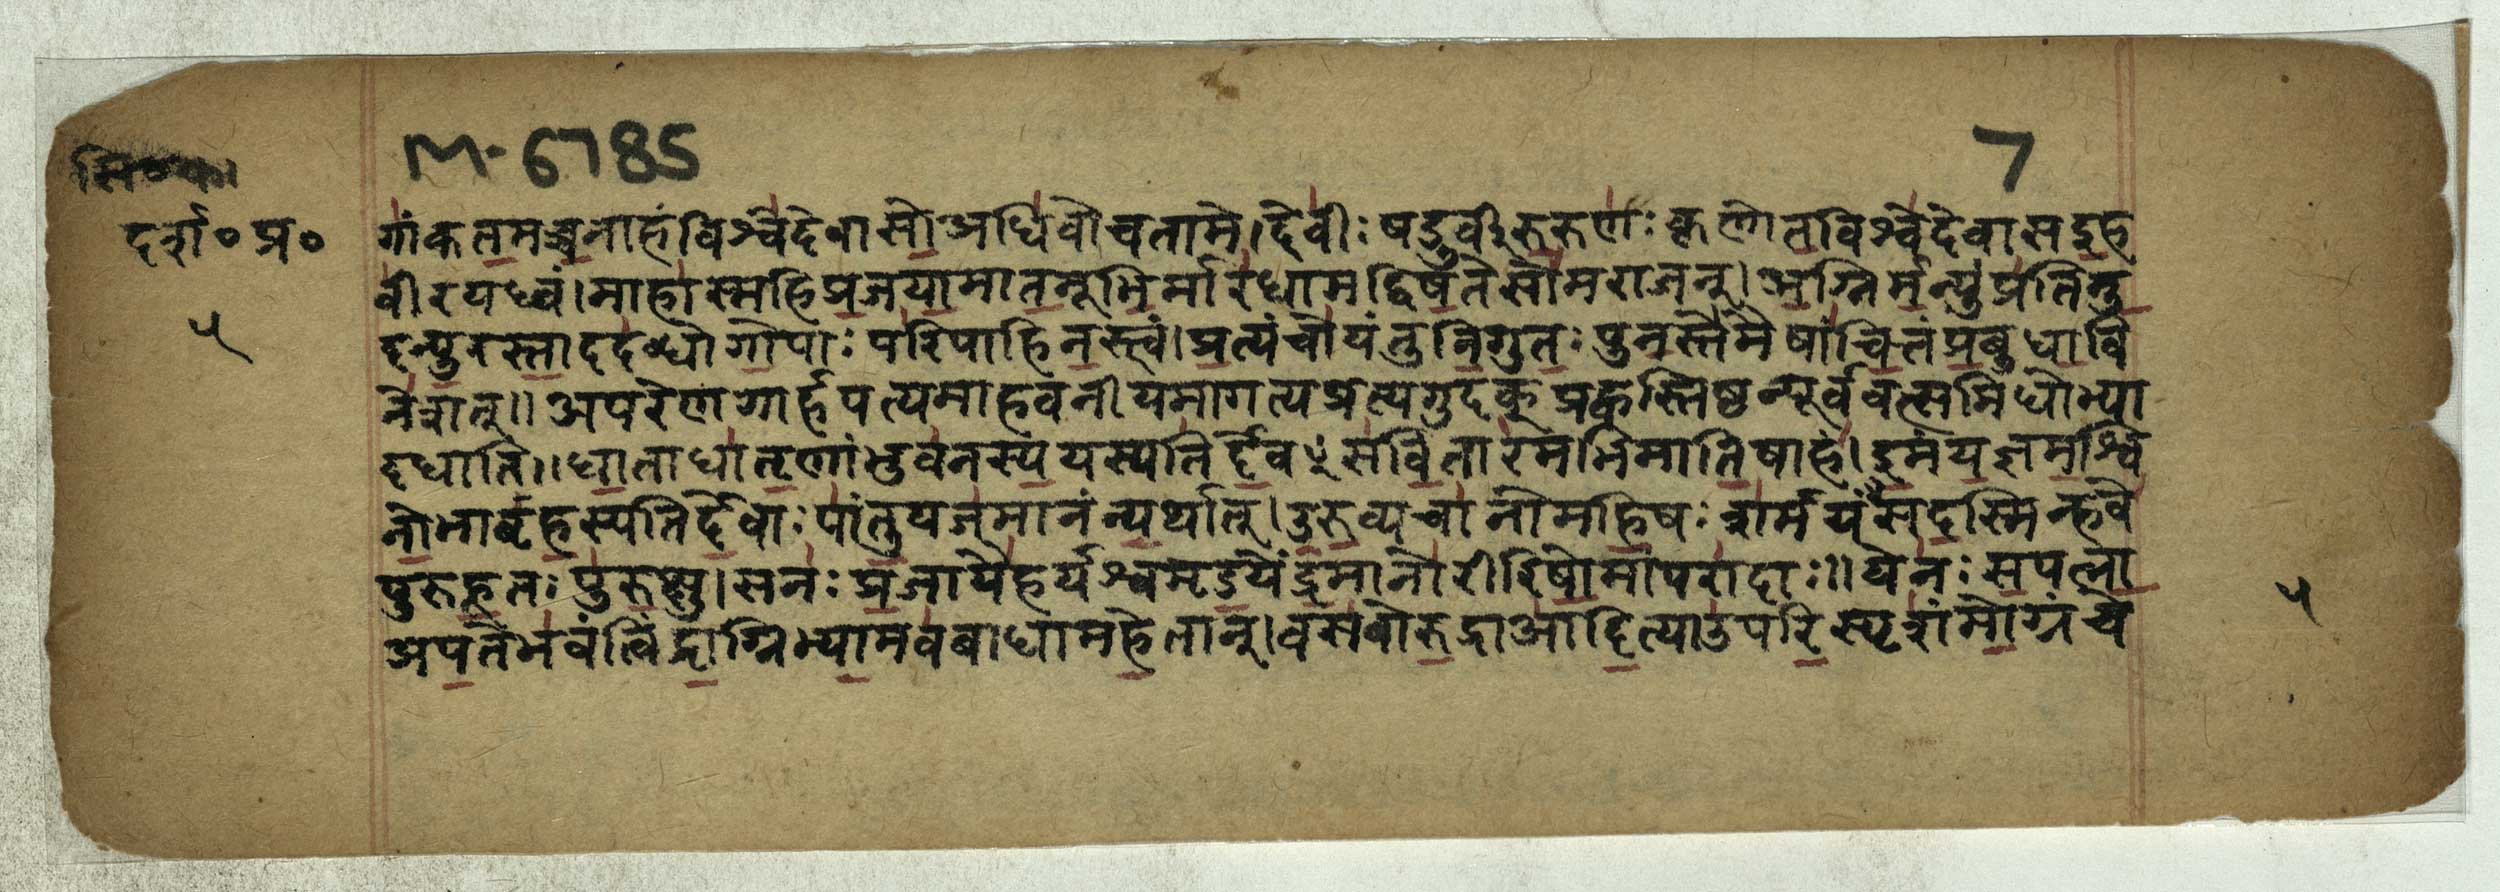 M-6785
7
दर्श० प्र०
५
गां कतमच्चनाहं विश्वे देवासो अधिवोचता मे । देवीः षडुर्वीरुरुणः कृणोत विश्वे देवास इह
वीरयध्वं । माहास्महि प्रजया मा तनूभिर्मा रधाम द्विषते सोम राजन् । अग्निर्मन्युं प्रतिनु
दन्पुरस्ताददब्धो गोपाः परिपाहि नस्त्वं । प्रत्यंचो यंतु निगुतः पुनस्ते मैषां चित्तं प्रबुधा वि
नेशत् ॥ अपरेण गार्हपत्यमाहवनीयमागत्य प्रत्यगुदक् प्रह्वस्तिष्ठन्पूर्ववत्समिधोभ्या
दधाति ॥ धाता धातॄणां भुवनस्य यस्पतिर्देवꣳ सवितारमभिमातिषाहं । इमं यज्ञमश्वि
नोभा बृहस्पतिर्देवाः पांतु यजमानं न्यर्थात् । उरुव्यचा नो महिषः शर्म यंसदस्मिन्हवे
पुरुहूतः पुरुक्षु । स नः प्रजायै हर्यश्व मृडयेंद्र मा नो रीरिषो मा परादाः ॥ ये नः सपत्ना
अप ते भवंत्विंद्राग्निभ्यामव बाधामहे तान् । वसवो रुद्रा आदित्या उपरिस्पृशं मोग्रं चे
५